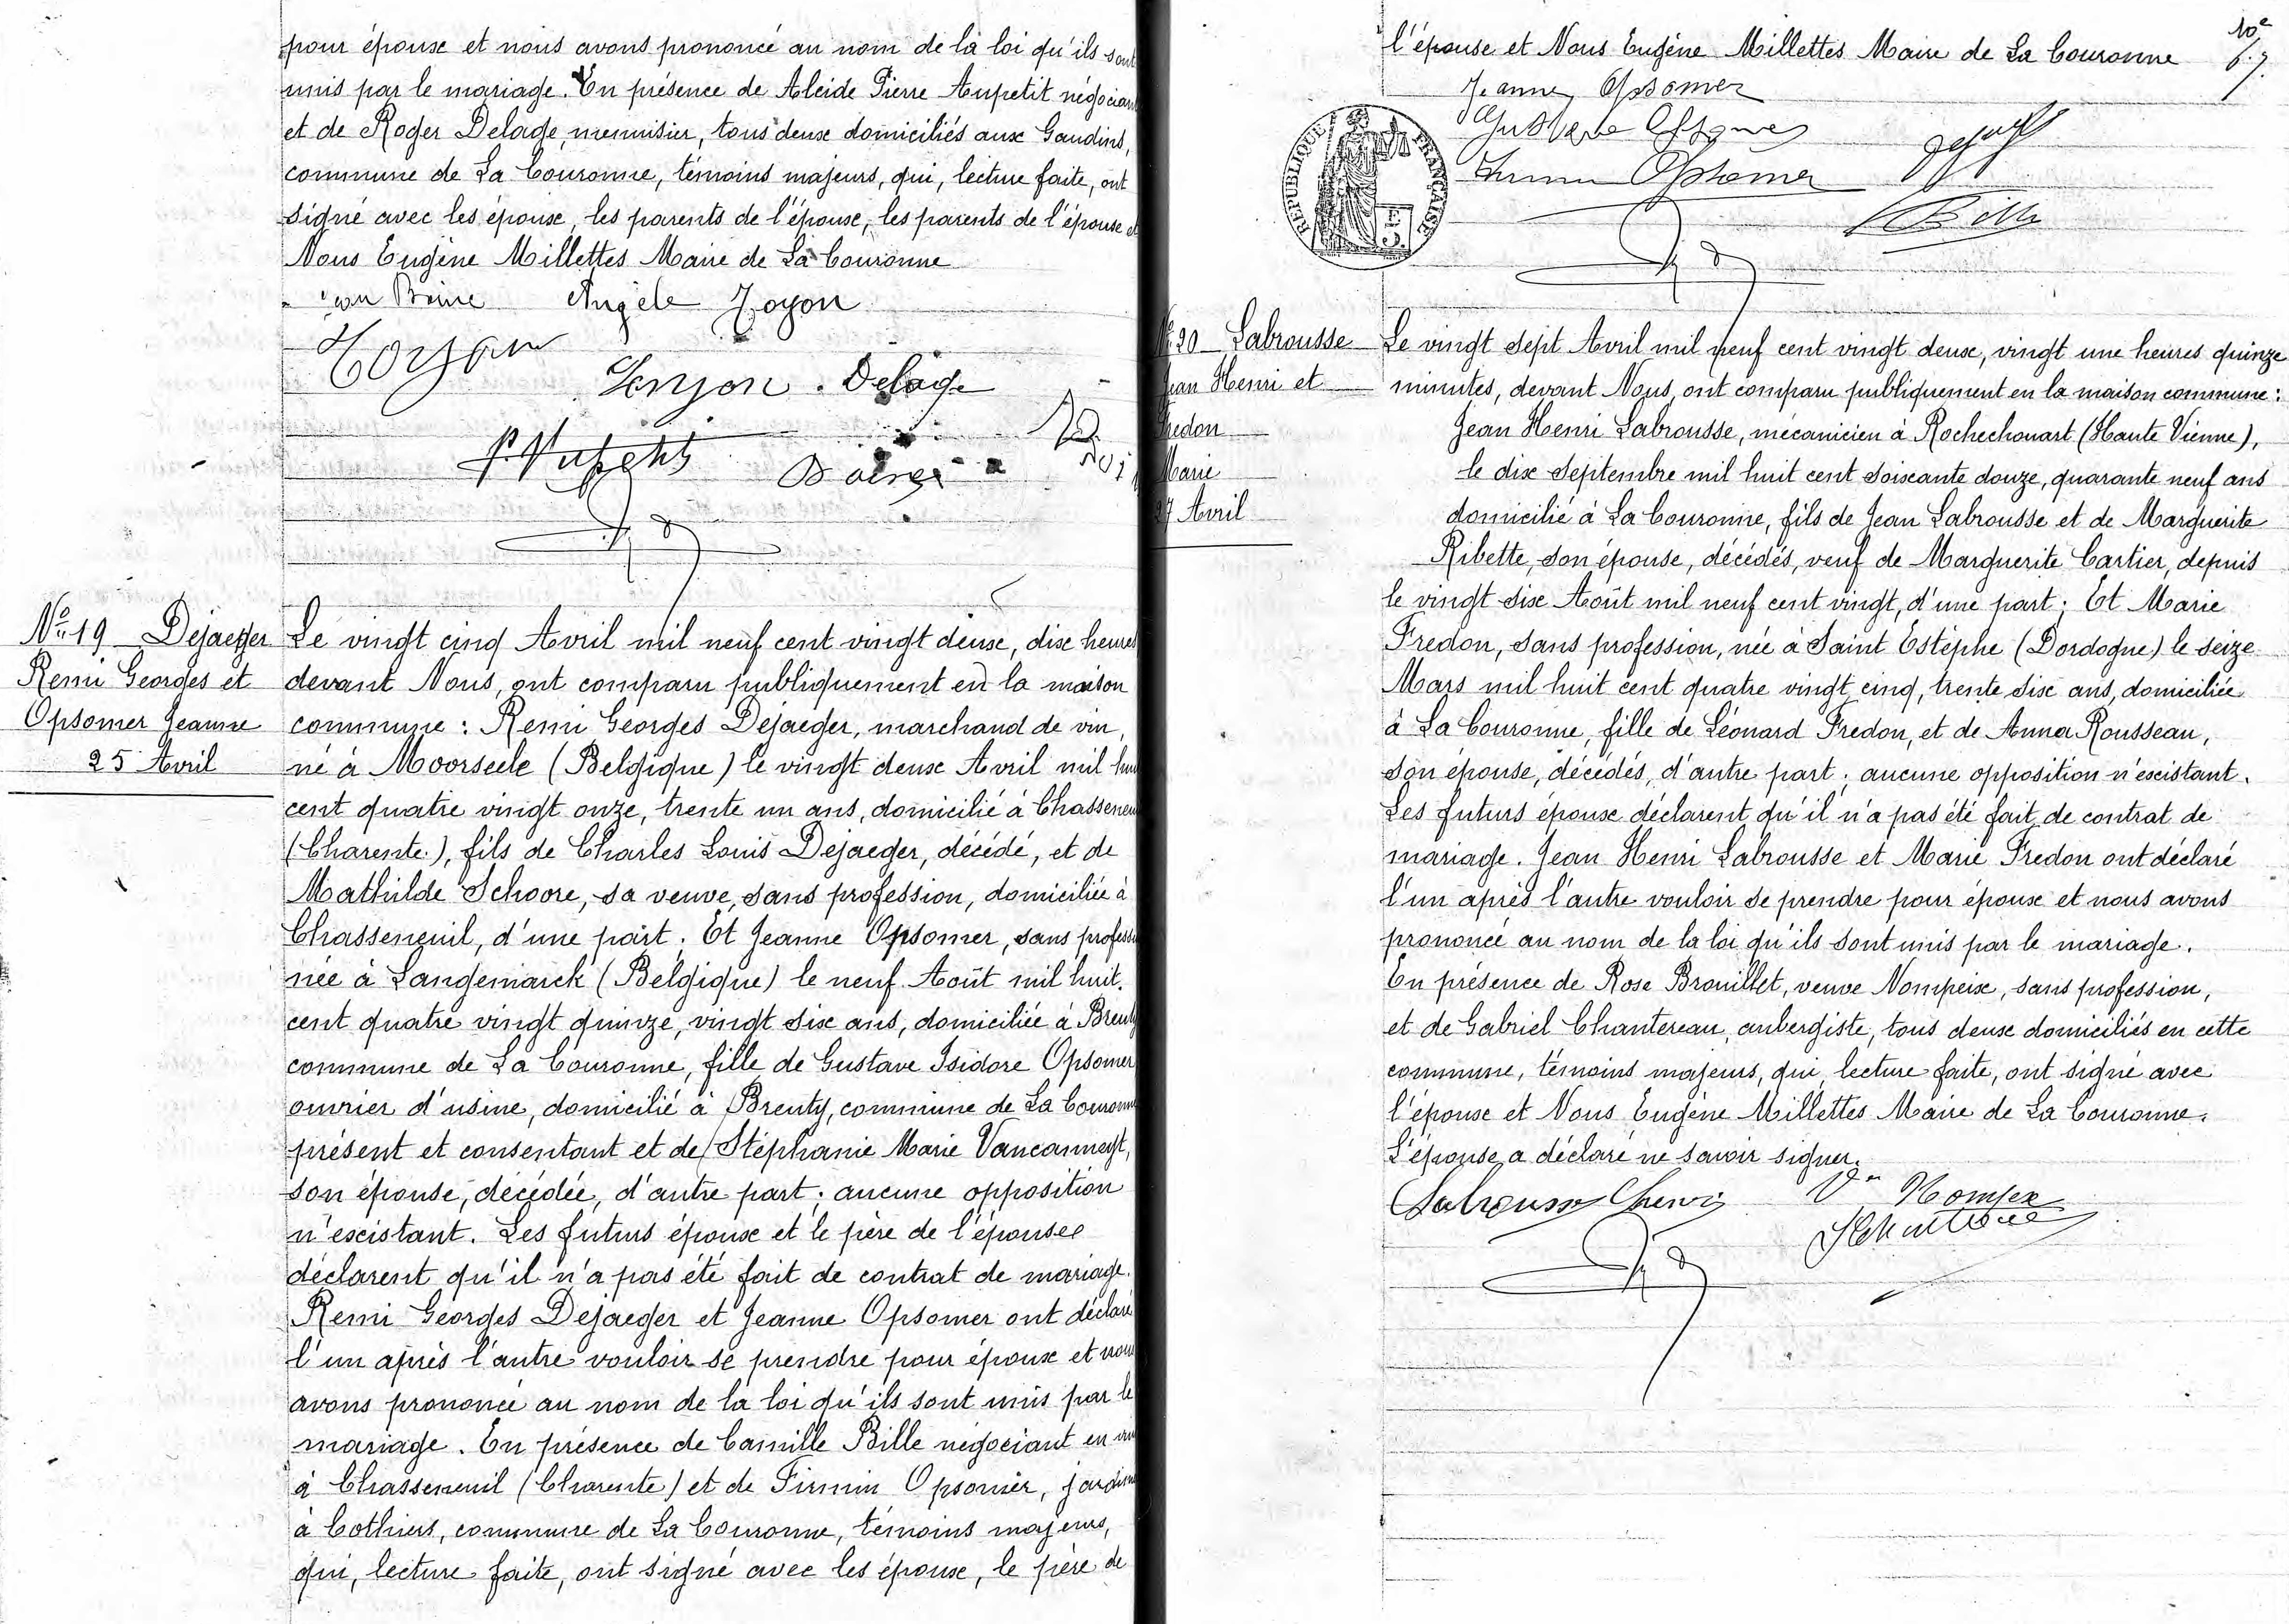 pour épouse et nous avons prononcé au nom de la loi qu'ils sont
unis par le mariage. En présence de Alcide Pierre Aupetit négociant
et de Roger Delage, menuisier, tous deux domiciliés aux Gaudins,
commune de La Couronne, témoins majeurs, qui, lecture faite, ont
signé avec les époux, les parents de l'époux, les parents de l'épouse et
Nous Eugène Millettes Maire de La Couronne
Angèle Joyon
Delage
Nº 19 Dejaeger
Remi Georges et
Opsomer Jeanne
25 Avril
Le vingt cinq Avril mil neuf cent vingt deux, dix heures
devant Nous, ont comparu publiquement en la maison
commune : Remi Georges Dejaeger, marchand de vin,
né à Moorseele (Belgique) le vingt deux Avril mil huit
cent quatre vingt onze, trente un ans, domicilié à Chasseneuil
(Charente), fils de Charles Louis Dejaeger, décédé, et de
Mathilde Schoore, sa veuve, sans profession, domiciliée à
Chasseneuil, d'une part. Et Jeanne Opsomer, sans profession
née à Langemarck (Belgique) le neuf Août mil huit
cent quatre vingt quinze, vingt six ans, domiciliée à Breuty
commune de La Couronne, fille de Gustave Isidore Opsomer
ouvrier d'usine, domicilié à Breuty, commune de La Couronne
présent et consentant et de Stéphanie Marie Vancanneyt,
son épouse, décédée, d'autre part ; aucune opposition
n'existant. Les futurs époux et le père de l'épouse
déclarent qu'il n'a pas été fait de contrat de mariage.
Remi Georges Dejaeger et Jeanne Opsomer ont déclaré
l'un après l'autre vouloir se prendre pour époux et nous
avons prononcé au nom de la loi qu'ils sont unis par le
mariage. En présence de Camille Bille négociant en vin
à Chasseneuil (Charente) et de Firmin Opsomer, jardinier
à Cothiers, commune de La Couronne, témoins majeurs,
qui, lecture faite, ont signé avec les époux, le père de
l'épouse et Nous Eugène Millettes Maire de La Couronne
Jeanne Opsomer
Opsomer
Bille
RÉPUBLIQUE FRANÇAISE
Nº 20 Labrousse
Jean Henri et
Fredon
Marie
27 Avril
Le vingt sept Avril mil neuf cent vingt deux, vingt une heures quinze
minutes, devant Nous, ont comparu publiquement en la maison commune :
Jean Henri Labrousse, mécanicien à Rochechouart (Haute Vienne),
le dix Septembre mil huit cent soixante douze, quarante neuf ans
domicilié à La Couronne, fils de Jean Labrousse et de Marguerite
Ribette, son épouse, décédés, veuf de Marguerite Cartier, depuis
le vingt six Août mil neuf cent vingt, d'une part ; Et Marie
Fredon, sans profession, née à Saint Estèphe (Dordogne) le seize
Mars mil huit cent quatre vingt cinq, trente six ans, domiciliée
à La Couronne, fille de Léonard Fredon, et de Anna Rousseau,
son épouse, décédés, d'autre part ; aucune opposition n'existant.
Les futurs époux déclarent qu'il n'a pas été fait de contrat de
mariage. Jean Henri Labrousse et Marie Fredon ont déclaré
l'un après l'autre vouloir se prendre pour époux et nous avons
prononcé au nom de la loi qu'ils sont unis par le mariage.
En présence de Rose Brouillet, veuve Nompeix, sans profession,
et de Gabriel Chantereau, aubergiste, tous deux domiciliés en cette
commune, témoins majeurs, qui, lecture faite, ont signé avec
l'époux et Nous Eugène Millettes Maire de La Couronne.
L'épouse a déclaré ne savoir signer.
Labrousse Henri Vve Nompex